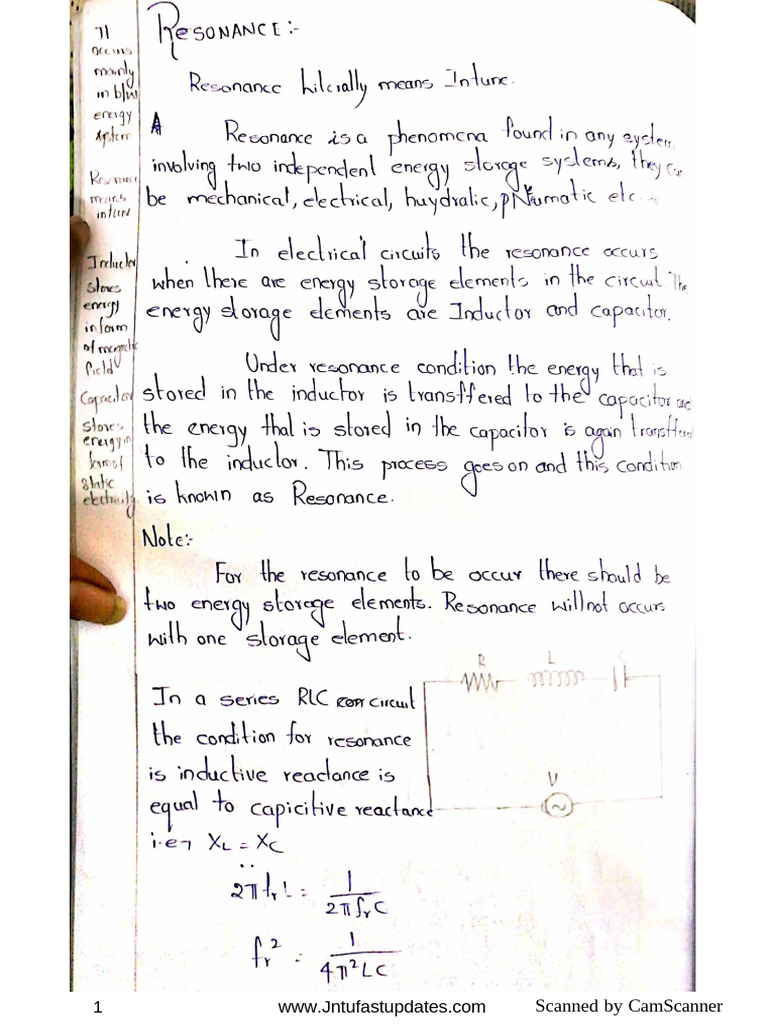 It
occurs
mainly
in b/w
energy
system
Resonance
means
intune
Inductor
stores
energy
in form
of magnetic
field
Capacitor
stores
energy in
form of
static
electricity
RESONANCE:-
Resonance literally means Intune.
Resonance is a phenomena found in any system
involving two independent energy storage systems, they can
be mechanical, electrical, huydralic, pNeumatic etc...
In electrical circuits the resonance occurs
when there are energy storage elements in the circuit. The
energy storage elements are Inductor and capacitor.
Under resonance condition the energy that is
stored in the inductor is transffered to the capacitor and
the energy that is stored in the capacitor is again transffered
to the inductor. This process goes on and this condition
is known as Resonance.
Note:-
For the resonance to be occur there should be
two energy storege elements. Resonance will not occurs
with one storage element.
In a series RLC circuit
the condition for resonance
is inductive reactance is
equal to capicitive reactance
i.e, XL = XC
2πfrL = 1/2πfrC
fr² = 1/4π²LC
R L C
V
1 www.Jntufastupdates.com Scanned by CamScanner